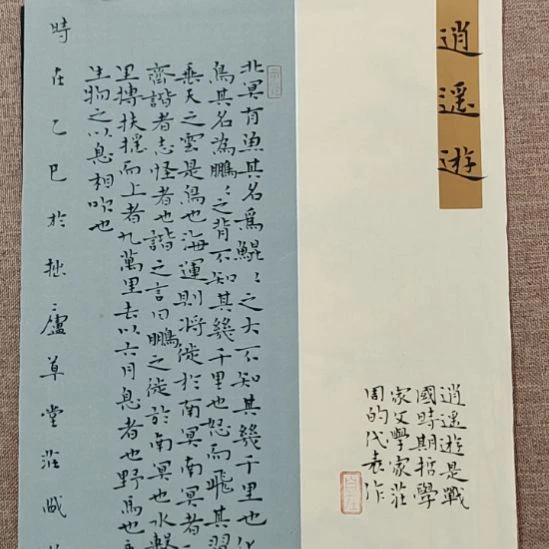 逍遥遊
逍遥遊是戰
國時期哲學
家文學家莊
周的代表作
北冥有漁其名爲鯤〻之大不知其幾千里也化
鳥其名為鵬〻之背不知其幾千里也怒而飛其翼
垂天之雲是鳥也海運則將徙於南冥南冥者
齊諧者志怪者也諧之言曰鵬之徙於南冥也水擊
里摶扶摇而上者九萬里去以六月息者也野馬也
生物之以息相吹也
時在乙巳於拙廬草堂莊